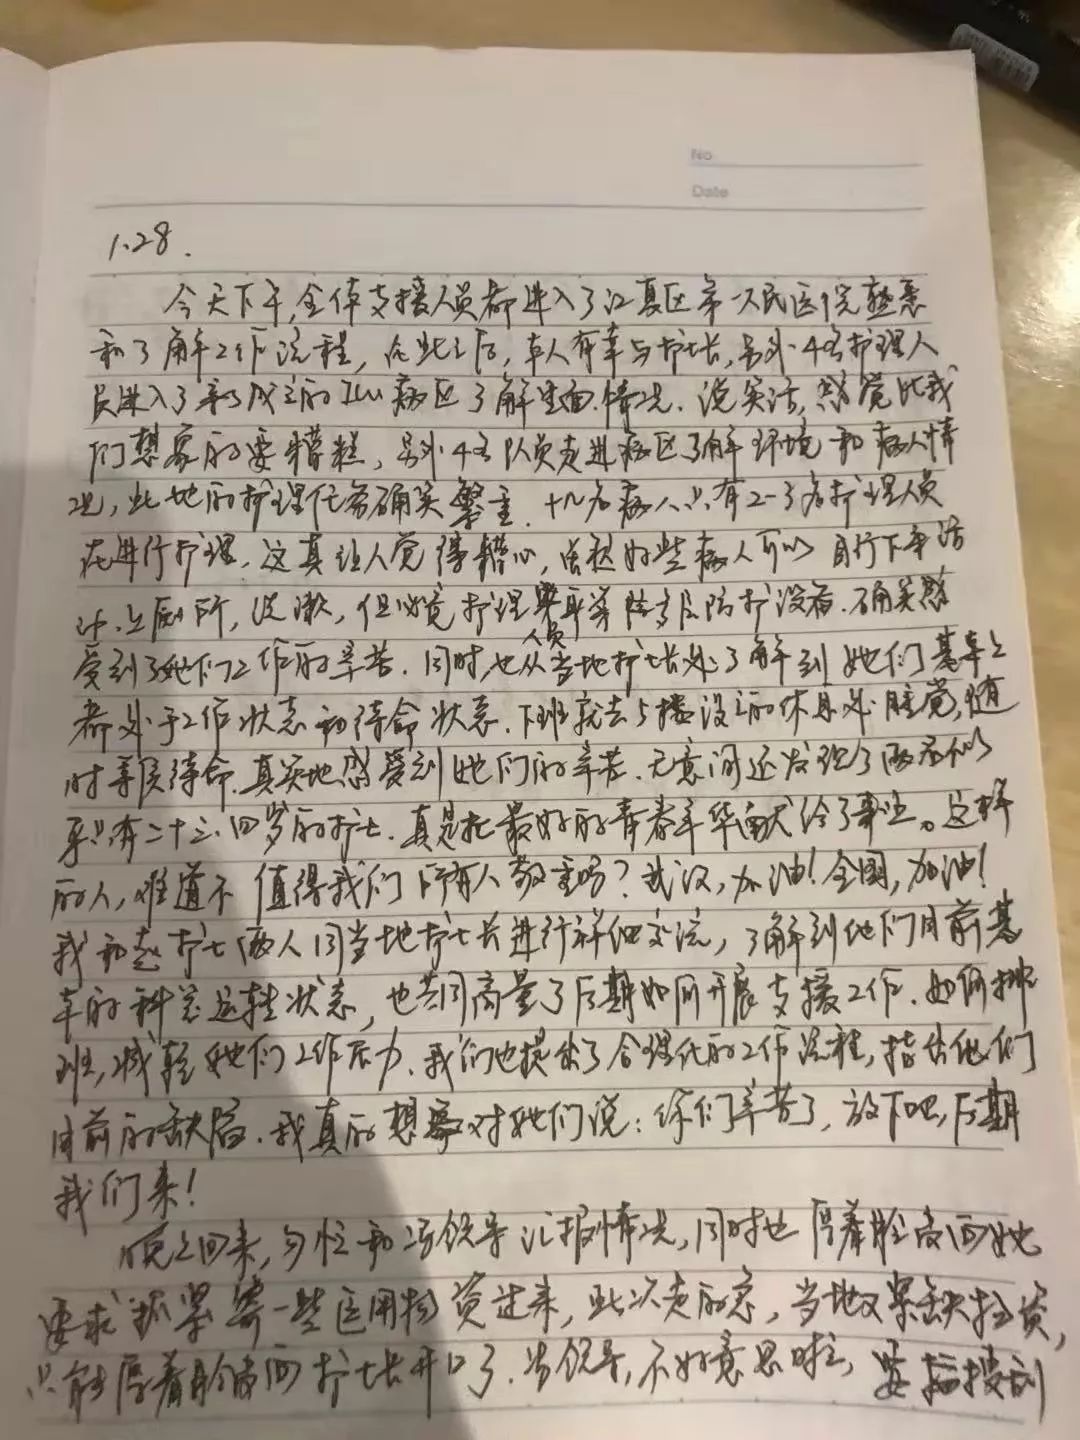 No
Date
1.28.
今天下午,全体支援人员都进入了江夏区第一人民医院熟悉
和了解工作流程,在此之后,本人有幸与护士长,另外4名护理人
员进入了新成立的ICU病区了解里面情况.说实话,感觉比我
们想象的要糟糕,另外4名队员走进病区了解环境和病人情
况,此地的护理任务确实繁重.十几名病人只有2-3名护理人员
在进行护理.这真让人觉得糟心,虽然好些病人可以自行下床活
动.上厕所,洗漱,但毕竟护理要耳等防护设备.确实感
受到了她们工作的辛苦.同时,也从当地护士长处了解到她们基本上
人员
都处于工作状态和待命状态.下班就去5楼设立的休息处睡觉,随
时等候待命.真实地感受到她们的辛苦.无意间还发现了两名似
乎只有二十三.四岁的护士.真是把最好的青春年华献给了事业。这样
的人,难道不值得我们所有人敬重吗?武汉,加油!全国,加油!
我和赵护士两人同当地护士长进行详细交流,了解到他们目前基
本的科室运转状态,也共同商量了后期如何开展支援工作.如何排
班,减轻她们工作压力.我们也提出了合理化的工作流程,指出他们
目前的缺陷.我真的想对她们说:你们辛苦了,放下吧,后期
我们来!
晚上回来,匆忙和冯领导汇报情况,同时也厚着脸皮向她
要求抓紧寄一些医用物资过来,此次走的急,当地又紧缺物资,
只能厚着脸皮向护士长开口了.冯领导,不好意思啦,要